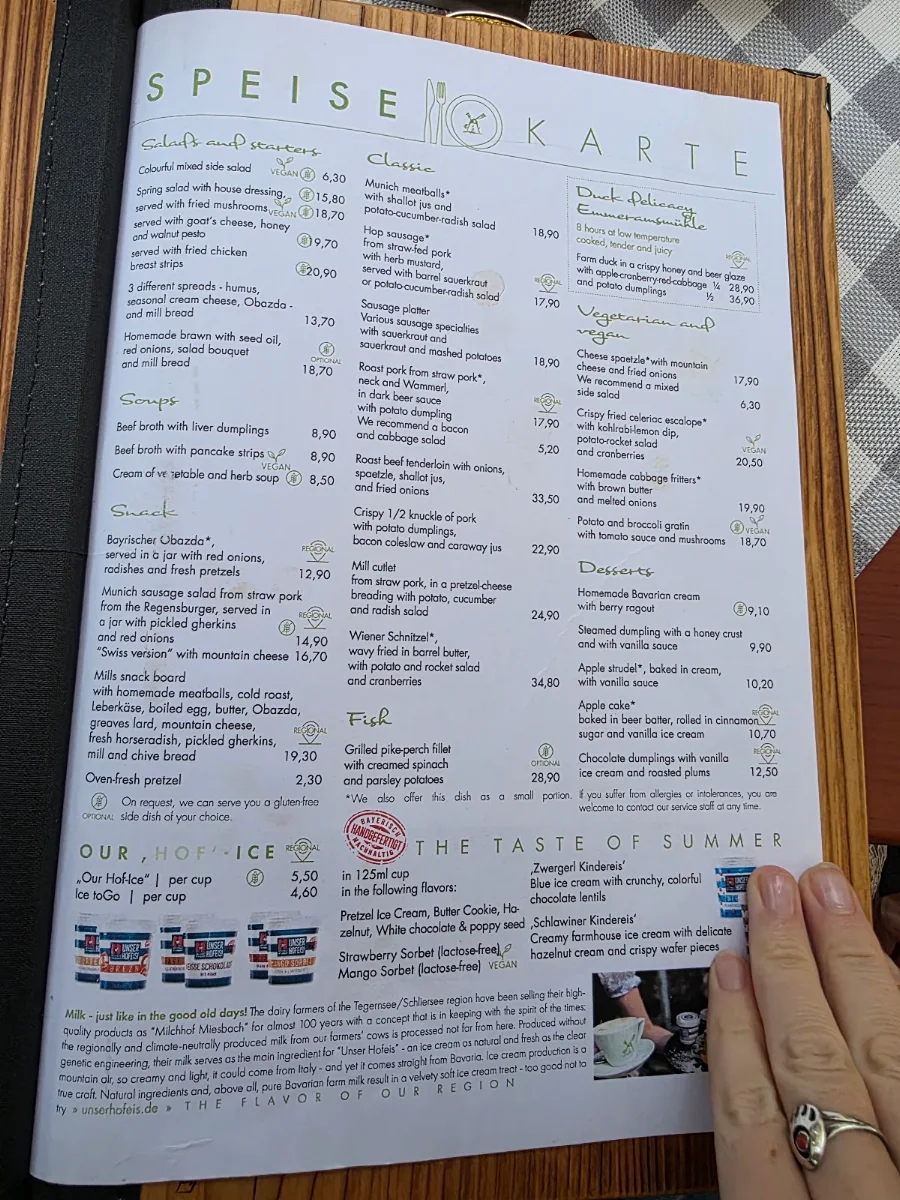 SPEISE KARTE
Salads and starters
Colourful mixed side salad VEGAN 6,30
Spring salad with house dressing, 15,80
served with fried mushrooms VEGAN 18,70
served with goat's cheese, honey
and walnut pesto 19,70
served with fried chicken
breast strips 20,90
3 different spreads - humus,
seasonal cream cheese, Obazda -
and mill bread 13,70
Homemade brawn with seed oil,
red onions, salad bouquet OPTIONAL
and mill bread 18,70
Soups
Beef broth with liver dumplings 8,90
Beef broth with pancake strips 8,90
VEGAN
Cream of vegetable and herb soup 8,50
Snack
Bayrischer Obazda*,
served in a jar with red onions, REGIONAL
radishes and fresh pretzels 12,90
Munich sausage salad from straw pork
from the Regensburger, served in REGIONAL
a jar with pickled gherkins
and red onions 14,90
"Swiss version" with mountain cheese 16,70
Mills snack board
with homemade meatballs, cold roast,
Leberkäse, boiled egg, butter, Obazda,
greaves lard, mountain cheese, REGIONAL
fresh horseradish, pickled gherkins,
mill and chive bread 19,30
Oven-fresh pretzel 2,30
On request, we can serve you a gluten-free
OPTIONAL side dish of your choice.
Classic
Munich meatballs*
with shallot jus and
potato-cucumber-radish salad 18,90
Hop sausage*
from straw-fed pork
with herb mustard,
served with barrel sauerkraut REGIONAL
or potato-cucumber-radish salad 17,90
Sausage platter
Various sausage specialties
with sauerkraut and
sauerkraut and mashed potatoes 18,90
Roast pork from straw pork*,
neck and Wammerl,
in dark beer sauce REGIONAL
with potato dumpling 17,90
We recommend a bacon
and cabbage salad 5,20
Roast beef tenderloin with onions,
spaetzle, shallot jus,
and fried onions 33,50
Crispy 1/2 knuckle of pork
with potato dumplings,
bacon coleslaw and caraway jus 22,90
Mill cutlet
from straw pork, in a pretzel-cheese
breading with potato, cucumber
and radish salad 24,90
Wiener Schnitzel*,
wavy fried in barrel butter,
with potato and rocket salad
and cranberries 34,80
Fish
Grilled pike-perch fillet
with creamed spinach OPTIONAL
and parsley potatoes 28,90
*We also offer this dish as a small portion.
Duck delicacy
Emmeramsmühle
8 hours at low temperature
cooked, tender and juicy REGIONAL
Farm duck in a crispy honey and beer glaze
with apple-cranberry-red-cabbage ¼ 28,90
and potato dumplings ½ 36,90
Vegetarian and
vegan
Cheese spaetzle*with mountain
cheese and fried onions 17,90
We recommend a mixed
side salad 6,30
Crispy fried celeriac escalope*
with kohlrabi-lemon dip,
potato-rocket salad VEGAN
and cranberries 20,50
Homemade cabbage fritters*
with brown butter
and melted onions 19,90
Potato and broccoli gratin VEGAN
with tomato sauce and mushrooms 18,70
Desserts
Homemade Bavarian cream
with berry ragout 9,10
Steamed dumpling with a honey crust
and with vanilla sauce 9,90
Apple strudel*, baked in cream,
with vanilla sauce 10,20
Apple cake* REGIONAL
baked in beer batter, rolled in cinnamon
sugar and vanilla ice cream 10,70
Chocolate dumplings with vanilla REGIONAL
ice cream and roasted plums 12,50
If you suffer from allergies or intolerances, you are
welcome to contact our service staff at any time.
OUR ,HOF'-ICE REGIONAL
„Our Hof-Ice" | per cup 5,50
Ice toGo | per cup 4,60
UNSER HOFEIS
BAYERISCH
HANDGEFERTIGT
NACHHALTIG
THE TASTE OF SUMMER
in 125ml cup
in the following flavors:
Pretzel Ice Cream, Butter Cookie, Ha-
zelnut, White chocolate & poppy seed
Strawberry Sorbet (lactose-free)
Mango Sorbet (lactose-free) VEGAN
‚Zwergerl Kindereis'
Blue ice cream with crunchy, colorful
chocolate lentils
‚Schlawiner Kindereis'
Creamy farmhouse ice cream with delicate
hazelnut cream and crispy wafer pieces
Milk - just like in the good old days! The dairy farmers of the Tegernsee/Schliersee region have been selling their high-
quality products as "Milchhof Miesbach" for almost 100 years with a concept that is in keeping with the spirit of the times:
the regionally and climate-neutrally produced milk from our farmers' cows is processed not far from here. Produced without
genetic engineering, their milk serves as the main ingredient for "Unser Hofeis" - an ice cream as natural and fresh as the clear
mountain air, so creamy and light, it could come from Italy - and yet it comes straight from Bavaria. Ice cream production is a
true craft. Natural ingredients and, above all, pure Bavarian farm milk result in a velvety soft ice cream treat - too good not to
try » unserhofeis.de » THE FLAVOR OF OUR REGION